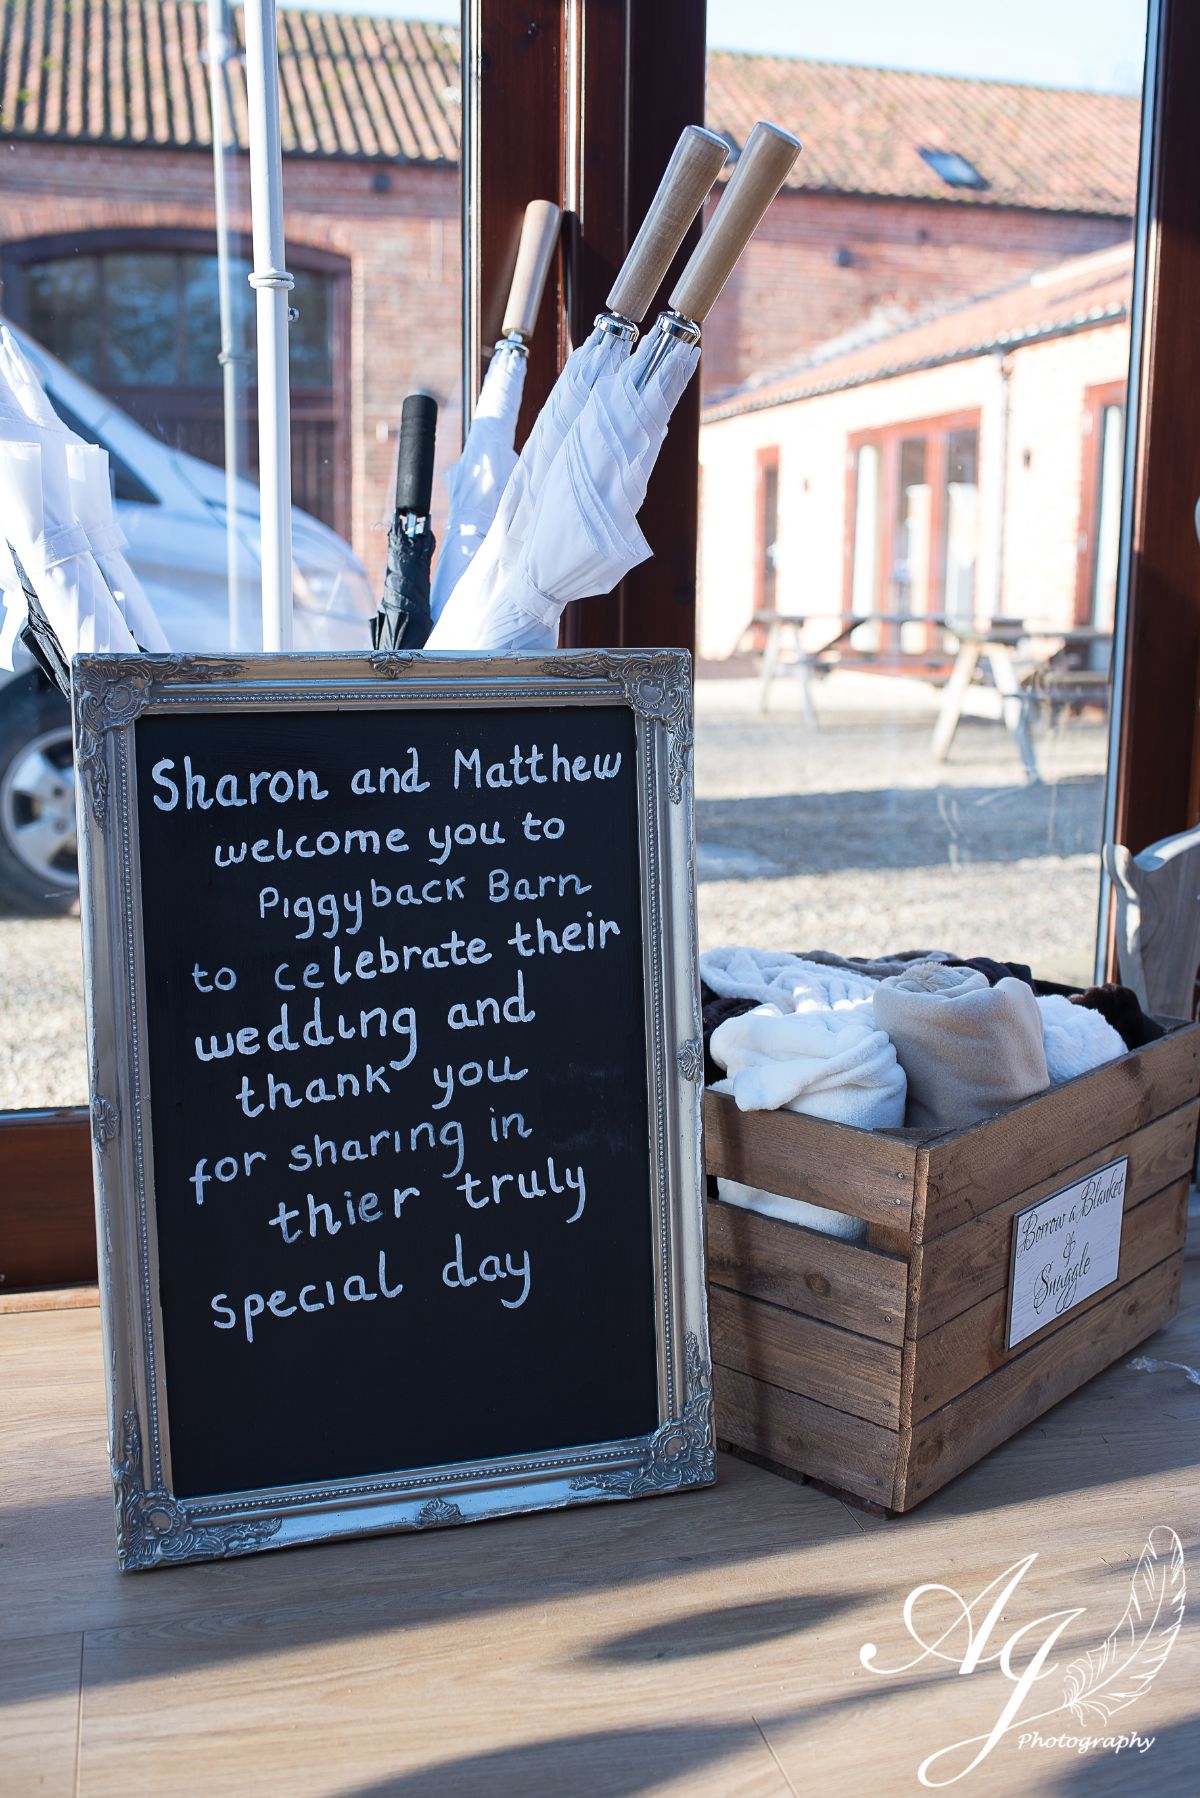 Sharon and Matthew
welcome you to
Piggyback Barn
to celebrate their
wedding and
thank you
for sharing in
thier truly
special day
Borrow a Blanket
&
Snuggle
AJ
Photography